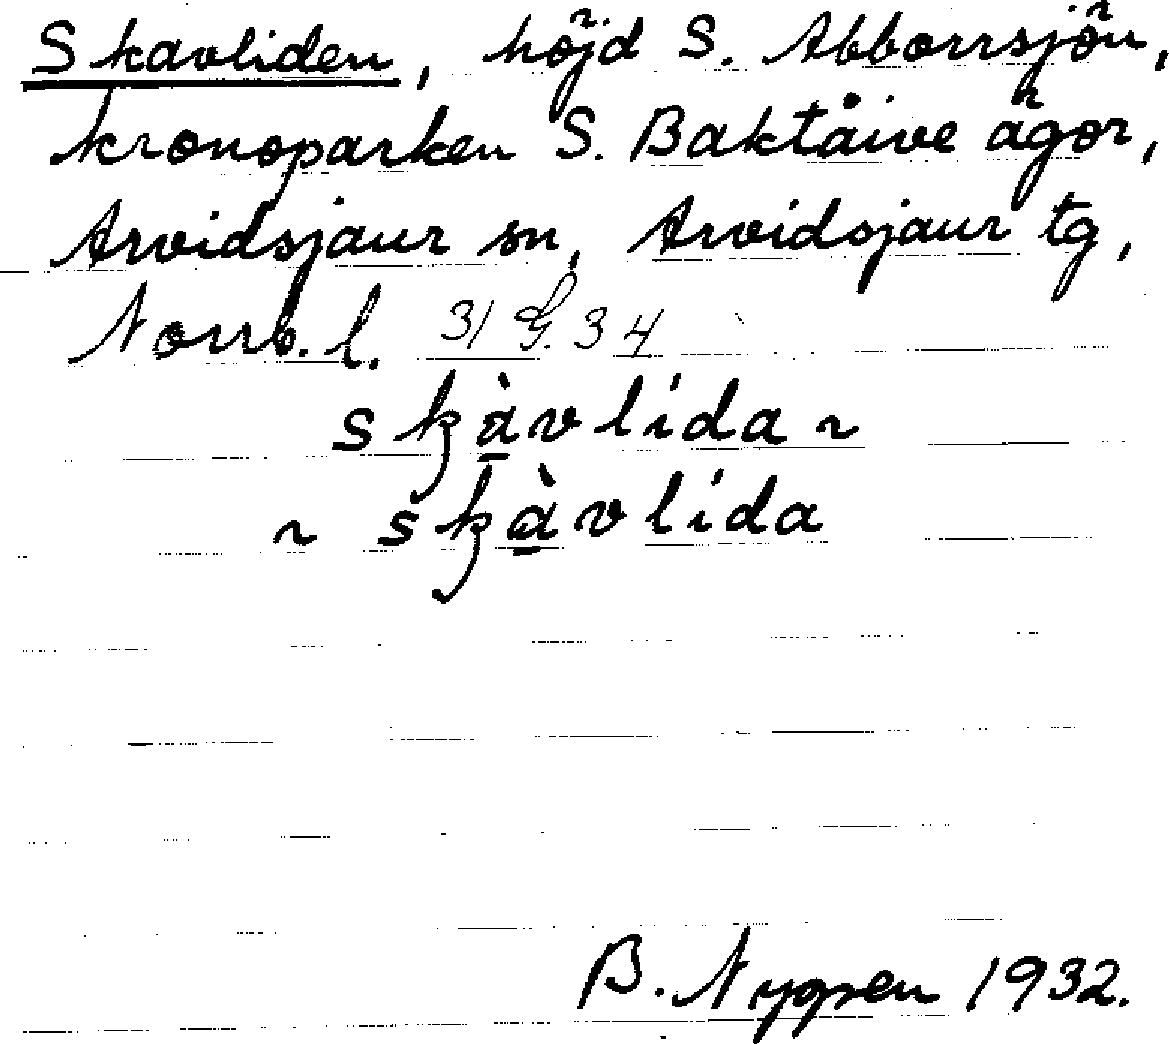 Skavliden, höjd S. Abborrsjön,
kronoparken S. Baktåive ägor,
Arvidsjaur sn, Arvidsjaur tg,
Norrb. l. 31 G. 34
skà̠vlída ~
~ skà̠vlída
B. Nygren 1932.